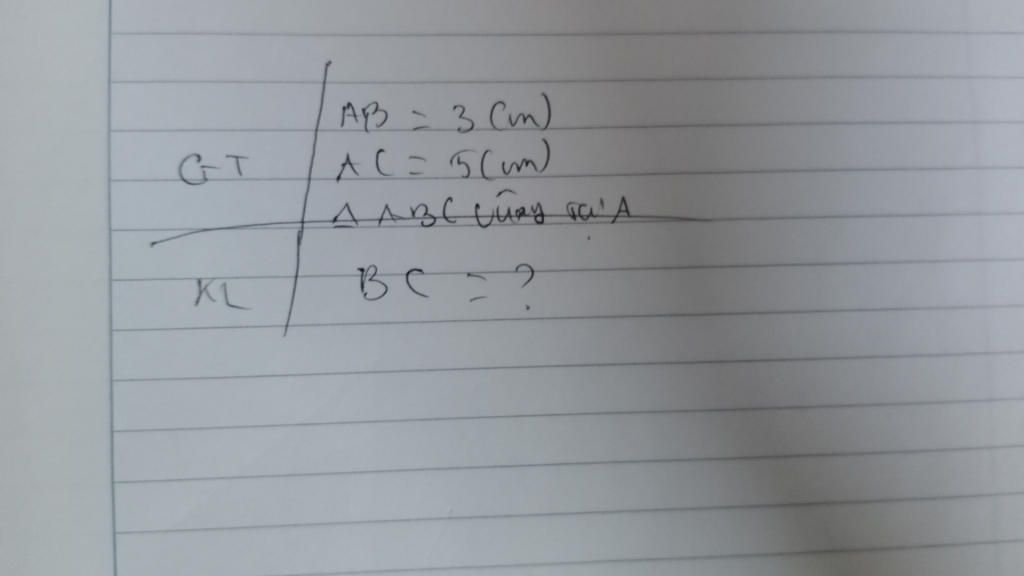 AB = 3 (cm)
GT
AC = 5 (cm)
Δ ABC vuông tại A
KL
BC = ?